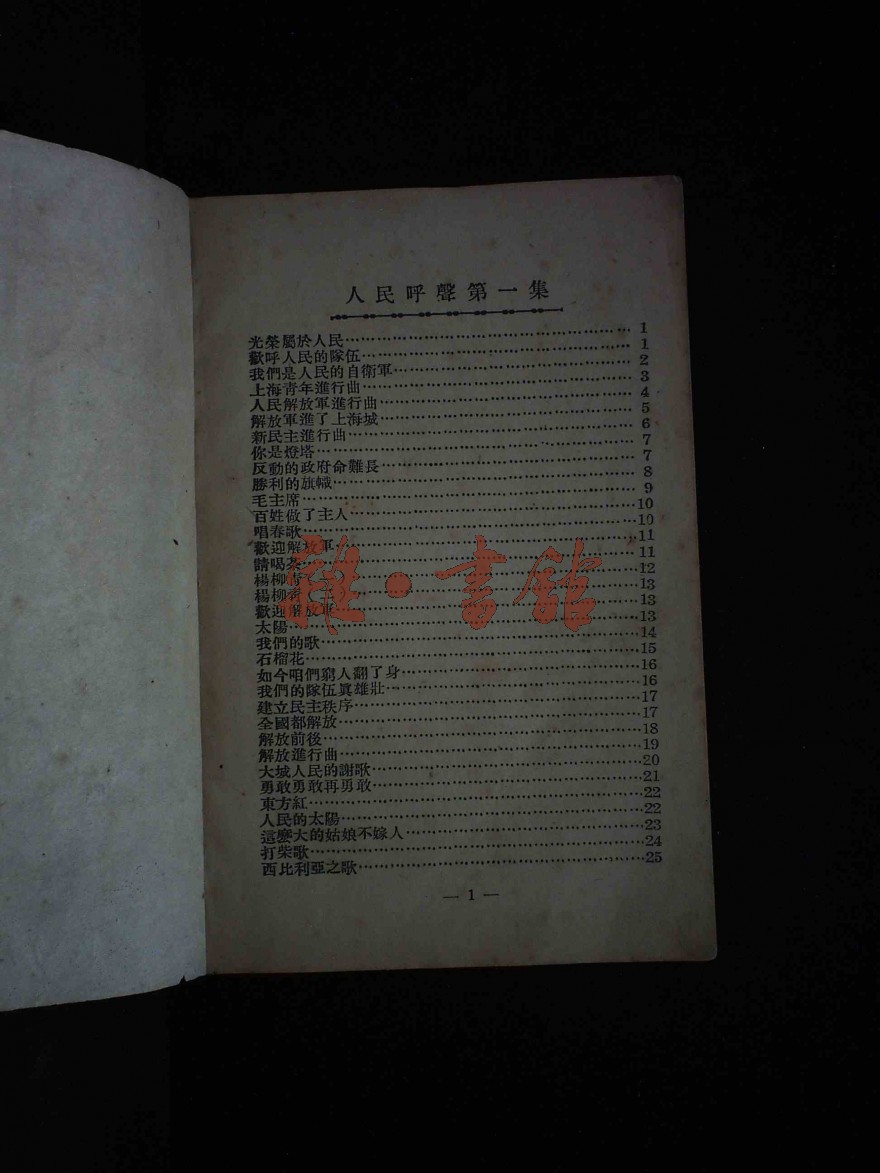 人民呼聲第一集
光榮屬於人民………1
歡呼人民的隊伍………1
我們是人民的自衛軍………2
上海靑年進行曲………3
人民解放軍進行曲………4
解放軍進了上海城………5
新民主進行曲………6
你是燈塔………7
反動的政府命難長………7
勝利的旗幟………8
毛主席………9
百姓做了主人………10
唱春歌………10
歡迎解放軍………11
請喝茶………11
楊柳靑………12
楊柳靑………13
歡迎解放軍………13
太陽………13
我們的歌………14
石榴花………15
如今咱們窮人翻了身………16
我們的隊伍眞雄壯………16
建立民主秩序………17
全國都解放………17
解放前後………18
解放進行曲………19
大城人民的謝歌………20
勇敢勇敢再勇敢………21
東方紅………22
人民的太陽………22
這麼大的姑娘不嫁人………23
打柴歌………24
西比利亞之歌………25
— 1 —
雜·書館